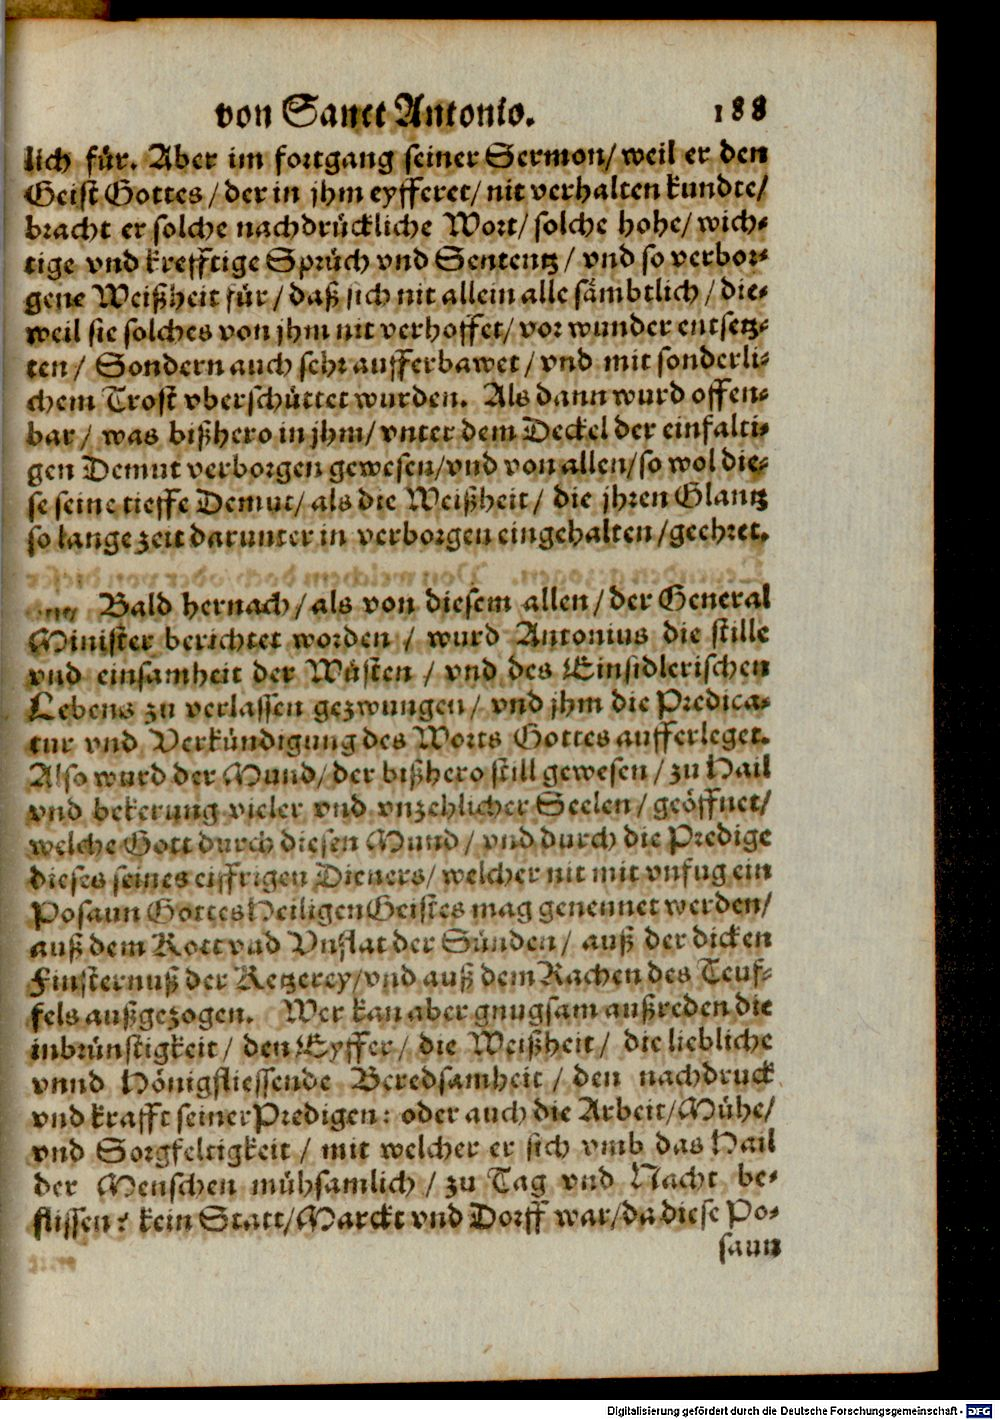 von Sanct Antonio. 188
lich für. Aber im fortgang seiner Sermon/ weil er den
Geist Gottes/ der in jhm eyfferet/ nit verhalten kundte/
bracht er solche nachdrückliche Wort/ solche hohe/ wich-
tige vnd krefftige Sprüch vnd Sententz/ vnd so verbor-
gene Weißheit für/ daß sich nit allein alle sämbtlich/ die-
weil sie solches von jhm nit verhoffet/ vor wunder entsetz-
ten/ Sondern auch sehr aufferbawet/ vnd mit sonderli-
chem Trost vberschüttet wurden. Als dann wurd offen-
bar/ was bißhero in jhm/ vnter dem Deckel der einfalti-
gen Demut verborgen gewesen/ vnd von allen/ so wol die-
se seine tieffe Demut/ als die Weißheit/ die jhren Glantz
so lange zeit darunter in verborgen eingehalten/ geehret.
Bald hernach/ als von diesem allen/ der General
Minister berichtet worden/ wurd Antonius die stille
vnd einsamheit der Wüsten/ vnd des Einsidlerischen
Lebens zu verlassen gezwungen/ vnd jhm die Predica-
tur vnd Verkündigung des Worts Gottes aufferleget.
Also wurd der Mund/ der bißhero still gewesen/ zu Hail
vnd bekerung vieler vnd vnzehlicher Seelen/ geöffnet/
welche Gott durch diesen Mund/ vnd durch die Predige
dieses seines eiffrigen Dieners/ welcher nit mit vnfug ein
Posaun Gottes Heiligen Geistes mag genennet werden/
auß dem Kott vnd Vnflat der Sünden/ auß der dicken
Finsternuß der Ketzerey/ vnd auß dem Rachen des Teuf-
fels außgezogen. Wer kan aber gnugsam außreden die
inbrünstigkeit/ den Eyffer/ die Weißheit/ die liebliche
vnnd Hönigfliessende Beredsamheit/ den nachdruck
vnd krafft seiner Predigen: oder auch die Arbeit/ Mühe/
vnd Sorgfeltigkeit/ mit welcher er sich vmb das Hail
der Menschen mühsamlich/ zu Tag vnd Nacht be-
flissen? kein Statt/ Marckt vnd Dorff war/ da diese Po-
saun
Digitalisierung gefördert durch die Deutsche Forschungsgemeinschaft - DFG